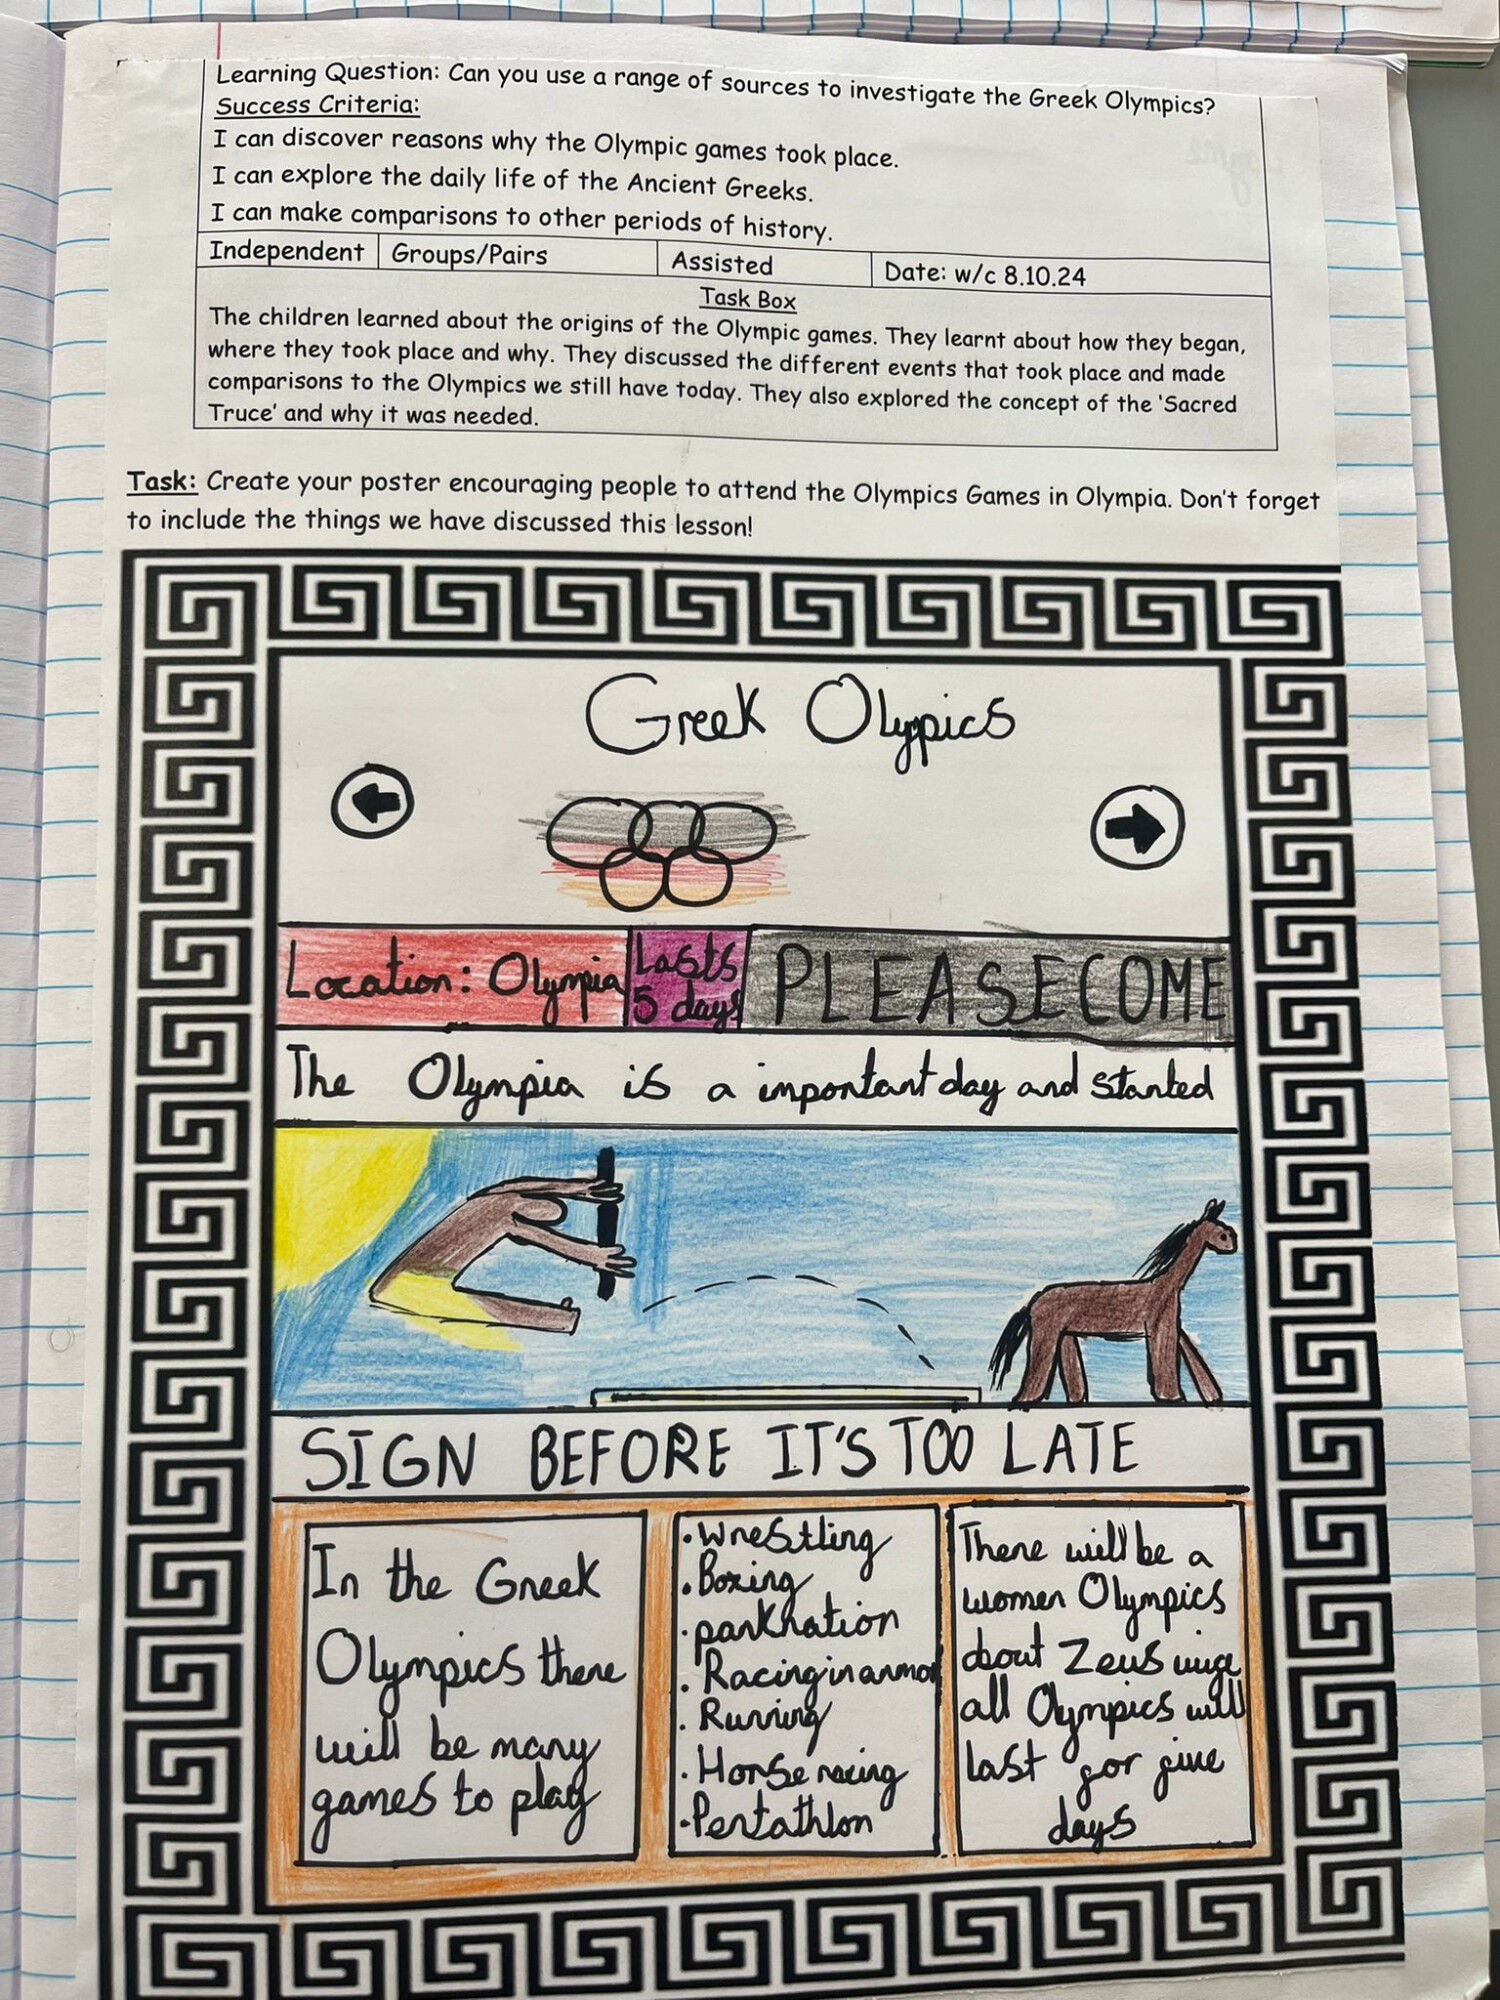 Learning Question: Can you use a range of sources to investigate the Greek Olympics?
Success Criteria:
I can discover reasons why the Olympic games took place.
I can explore the daily life of the Ancient Greeks.
I can make comparisons to other periods of history.
Independent Groups/Pairs Assisted Date: w/c 8.10.24
Task Box
The children learned about the origins of the Olympic games. They learnt about how they began,
where they took place and why. They discussed the different events that took place and made
comparisons to the Olympics we still have today. They also explored the concept of the 'Sacred
Truce' and why it was needed.
Task: Create your poster encouraging people to attend the Olympics Games in Olympia. Don't forget
to include the things we have discussed this lesson!
Greek Olypics
Location: Olympia
Lasts
5 days
PLEASE COME
The Olympia is a important day and started
SIGN BEFORE IT'S TOO LATE
In the Greek
Olympics there
will be many
games to play
· Wrestling
· Boxing
· parkration
· Racing in armor
· Running
· Horse racing
· Pentathlon
There will be a
women Olympics
about Zeus
all Olympics will
last for five
days